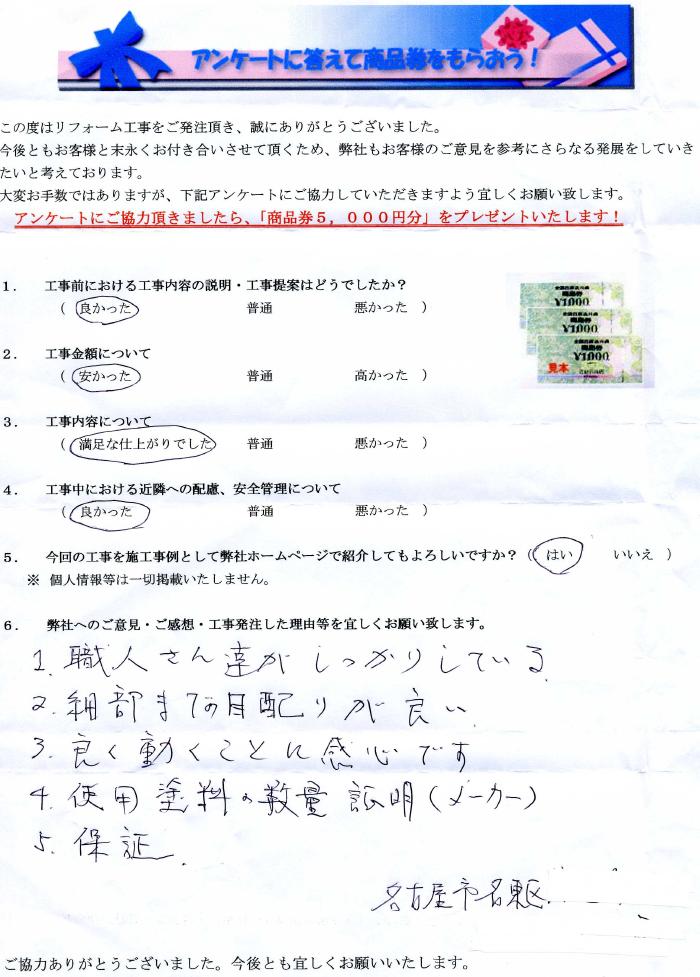 アンケートに答えて商品券をもらおう!
この度はリフォーム工事をご発注頂き、誠にありがとうございました。
今後ともお客様と末永くお付き合いさせて頂くため、弊社もお客様のご意見を参考にさらなる発展をしていき
たいと考えております。
大変お手数ではありますが、下記アンケートにご協力していただきますよう宜しくお願い致します。
アンケートにご協力頂きましたら、「商品券5,000円分」をプレゼントいたします!
1. 工事前における工事内容の説明・工事提案はどうでしたか?
( 良かった 普通 悪かった )
商品券
¥1,000
商品券
¥1,000
商品券
¥1,000
見本
2. 工事金額について
( 安かった 普通 高かった )
3. 工事内容について
( 満足な仕上がりでした 普通 悪かった )
4. 工事中における近隣への配慮、安全管理について
( 良かった 普通 悪かった )
5. 今回の工事を施工事例として弊社ホームページで紹介してもよろしいですか? ( はい いいえ )
※ 個人情報等は一切掲載いたしません。
6. 弊社へのご意見・ご感想・工事発注した理由等を宜しくお願い致します。
1. 職人さん達がしっかりしている
2. 細部までの目配りが良い
3. 良く動くことに感心です
4. 使用塗料の数量証明(メーカー)
5. 保証
名古屋市名東区
ご協力ありがとうございました。今後とも宜しくお願いいたします。